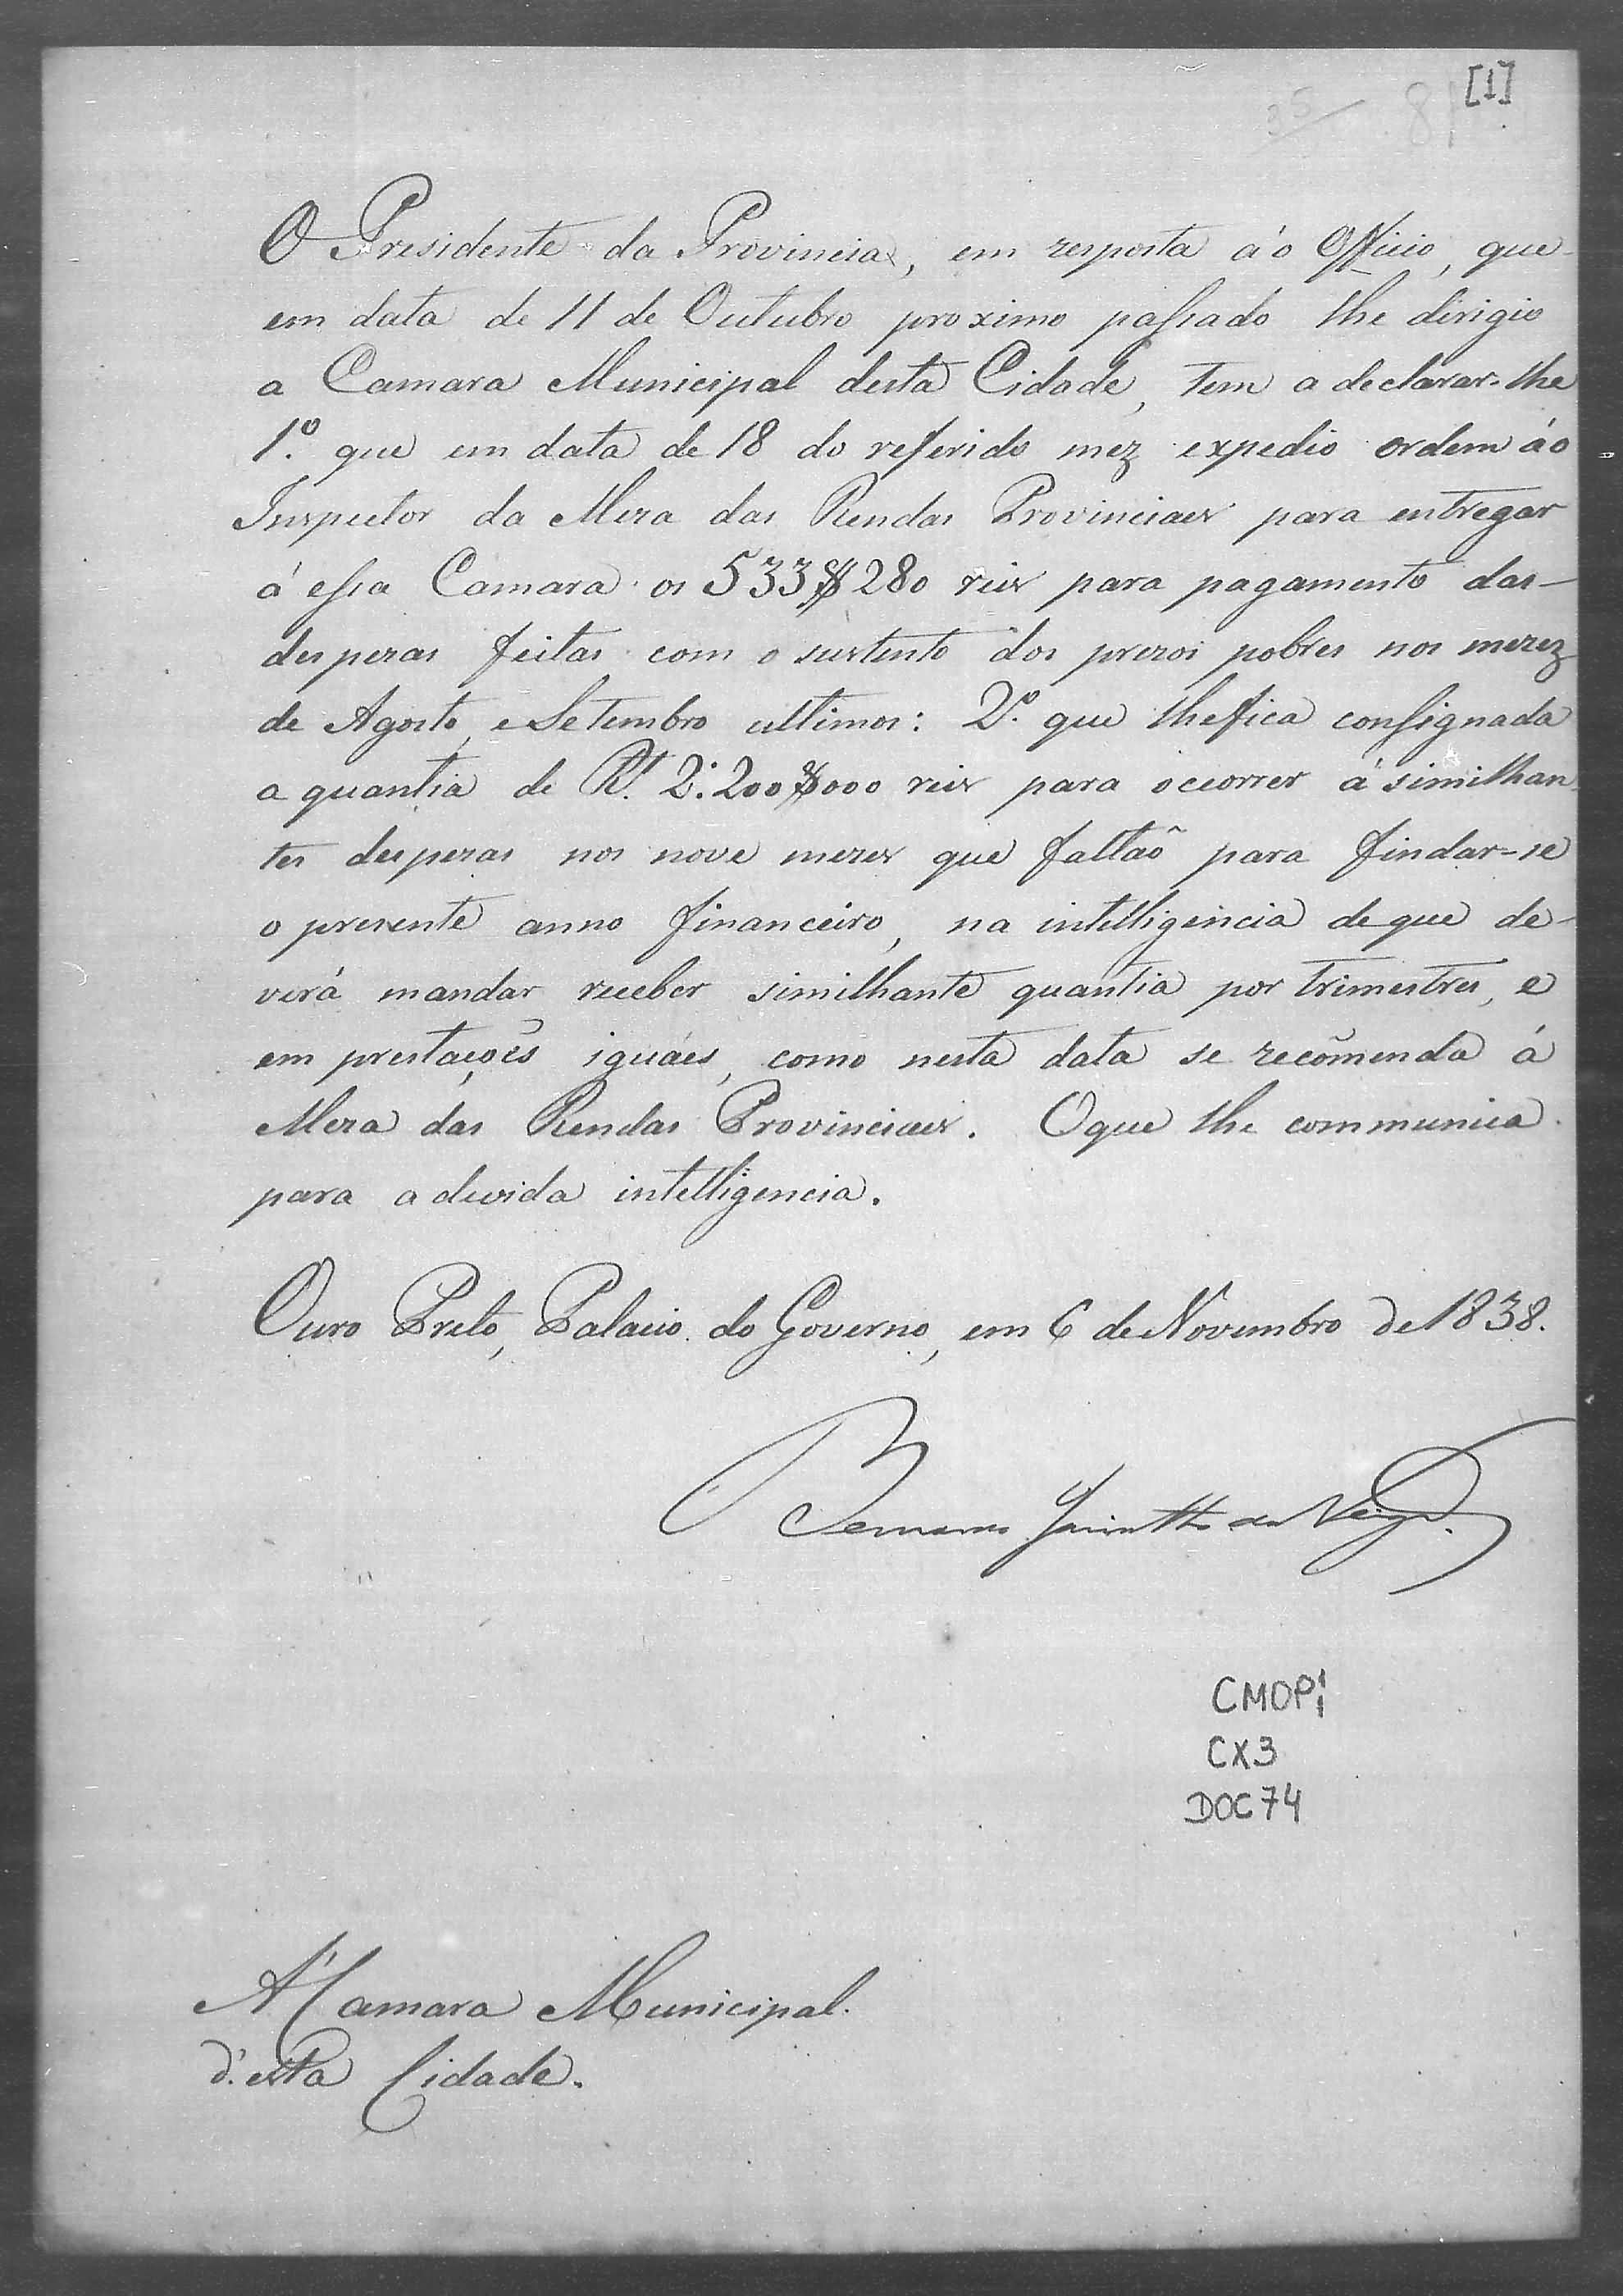 [1]
35 81
O Presidente da Provincia, em resposta á o Officio, que
em data de 11 de Outubro proximo passado lhe dirigio
a Camara Municipal desta Cidade, tem a declarar-lhe
1.º que em data de 18 do referido mez expedio ordem áo
Inspector da Meza das Rendas Provinciaes para entregar
á essa Camara os 533$280 reis para pagamento das
despezas feitas com o sustento dos prezos pobres nos mezez
de Agosto, e Setembro ultimos: 2.º que lhe fica consignada
a quantia de Rs. 2:200$000 reis para occorrer á similhan
tes despezas nos nove mezes que faltaõ para findar-se
o prezente anno financeiro, na intelligencia de que de-
verá mandar receber similhante quantia por trimestres, e
em prestaçoẽs iguáes, como nesta data se recõmenda á
Meza das Rendas Provinciaes. O que lhe communica
para a devida intelligencia.
Ouro Preto, Palacio do Governo, em 6 de Novembro de 1838.
Bernardo Jacintho da Veiga.
CMOP1
CX3
DOC 74
A' Camara Municipal
d'esta Cidade.